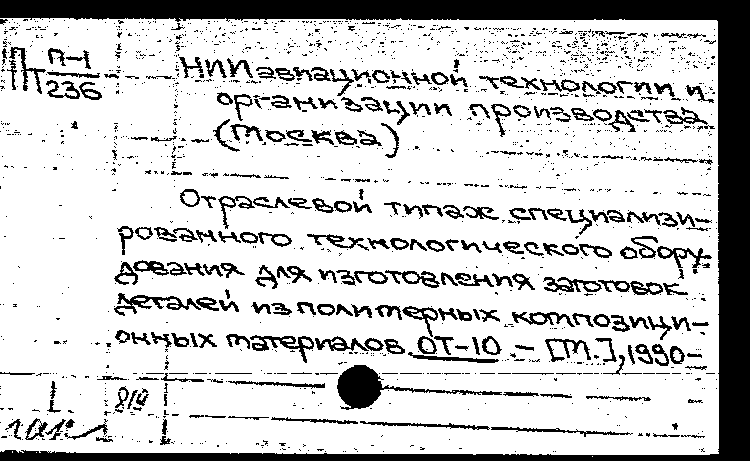 П П-1
236
НИИ авиационной технологии и
организации производства
(Москва)
Отраслевой типаж специализи-
рованного технологического обору-
дования для изготовления заготовок
деталей из полимерных композици-
онных материалов ОТ-10. - [М.], 1990-
819